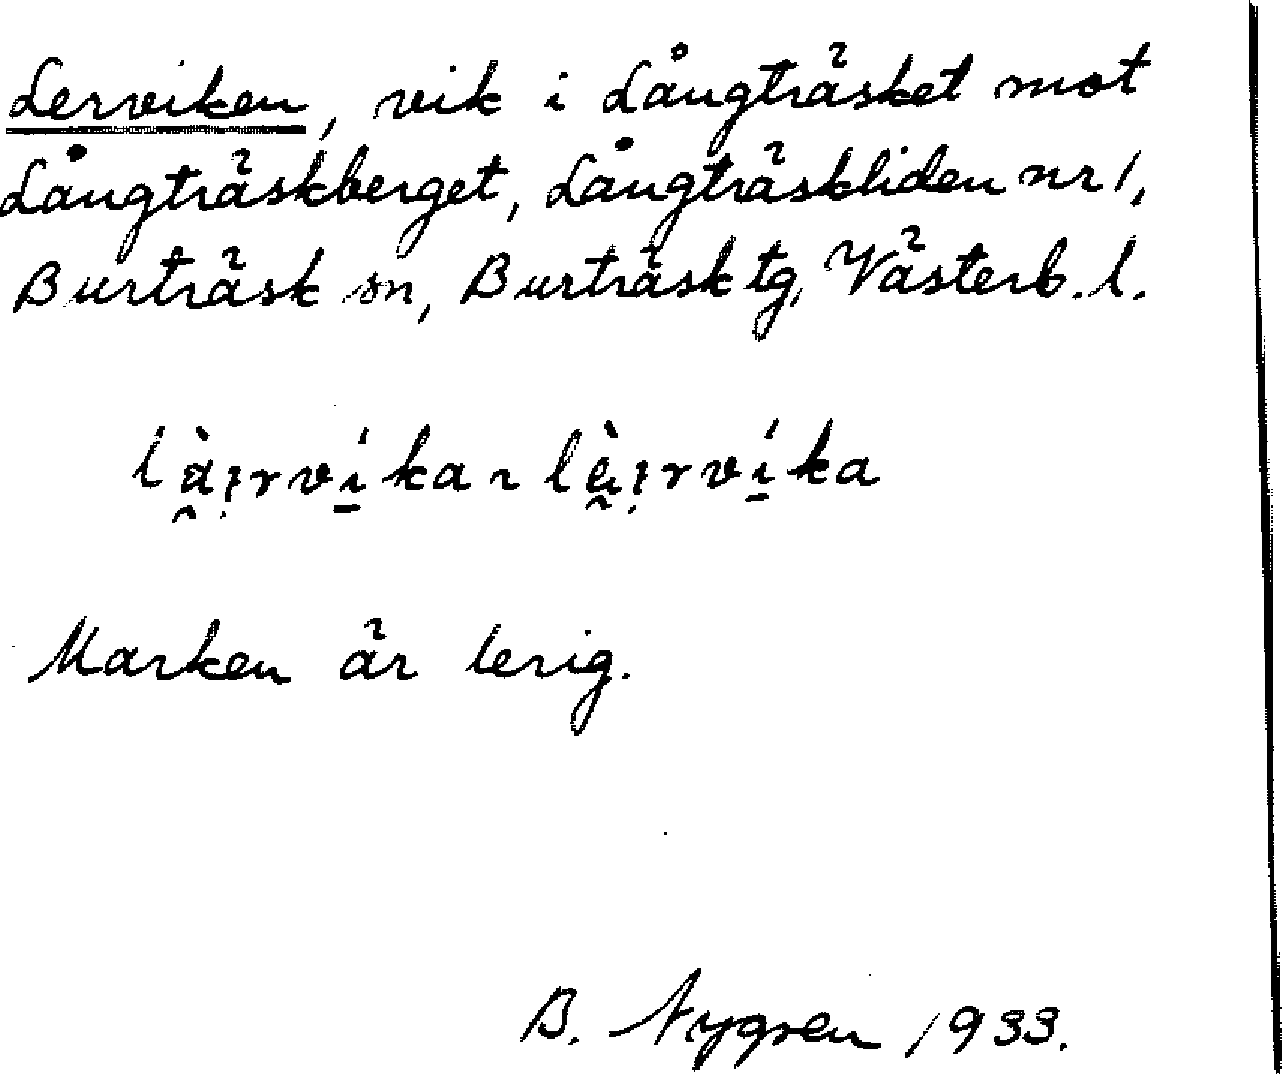 Lerviken, vik i Långträsket mot
Långträskberget, Långträskliden nr 1,
Burträsk sn, Burträsk tg, Västerb. l.
Marken är lerig.
B. Nygren 1933.